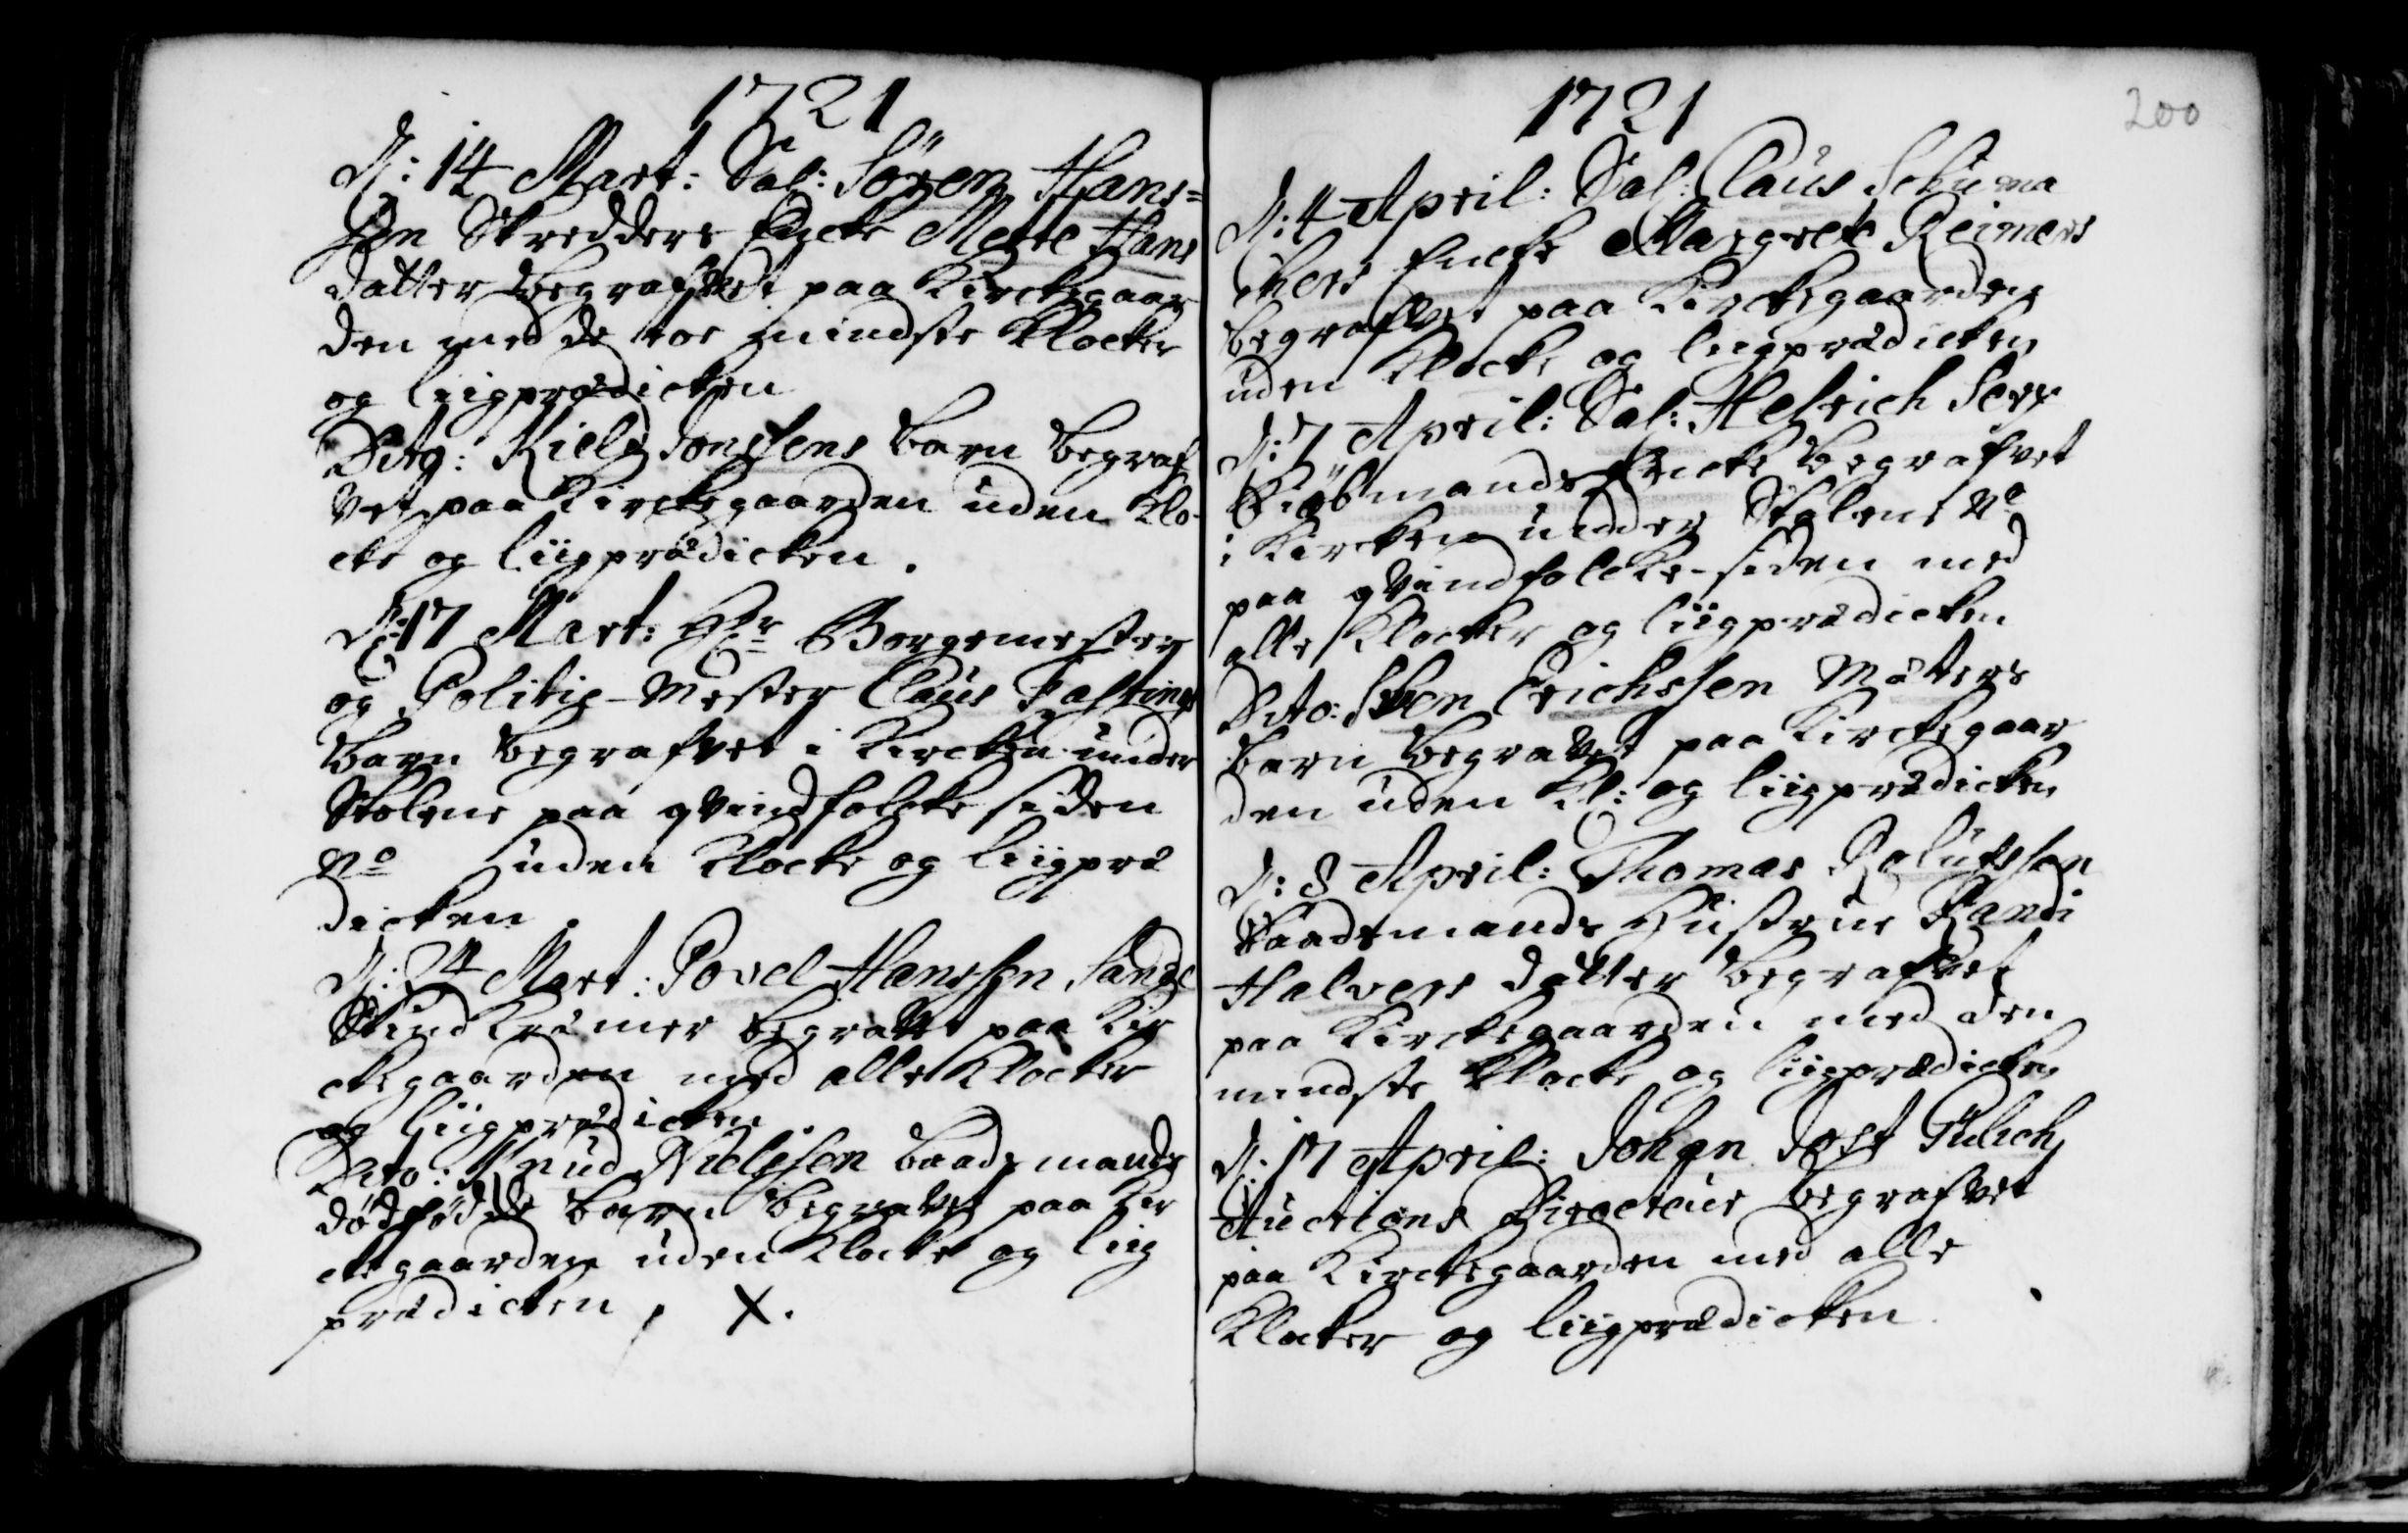 1721
D: 14 Mart: Sal: Sören Hans=
sen Skredders Encke Mette Hans
datter begrafvet paa Kirckegaar
den med de toe mindste Klocker
og liigprædicken
Dito: Kield Jonssens barn begraf
vet paa Kirckegaarden uden Klo-
cke og liigprædicken.
D: 17 Mart: Hr Borgemester
og Politie-Mester Claus Fastings
barn begrafvet i Kircken under
Stolene paa qvindfolcke siden
No uden Klocke og liigpræ
dicken.
D: 24 Mart: Povel Hanssen Sande
Skind Kræmer begravet paa Kir
ckegaarden med alle Klocker
og liigprædicken
Dito: Knud Nielssen baadsmands
dödfödde barn begravet paa Kir
ckegaarden uden Klocke og liig
prædicken, X.
1721
200
D: 4 April: Sal: Claus Schuma
chers Encke Margrete Reimers
begrafvet paa Kirckegaarden
uden Klocke og liigprædicken
D: 7 April: Sal: Helrich
Kiöbmands Encke begrafvet
i Kircken under Stolene No
paa qvindfolcke-siden med
alle Klocker og liigprædicken
Dito: Sven Erichssen
barn begravet paa Kirckegaar
den uden Kl: og liigprædicken
D: 8 April: Thomas
baadsmands Hustrue Randi
Halvers datter begrafvet
paa Kirckegaarden med den
mindste Klocke og liigprædicken
D: 17 April: Johan Jost Gulich
Auctions Directeur begrafvet
paa Kirckegaarden med alle
Klocker og liigprædicken.